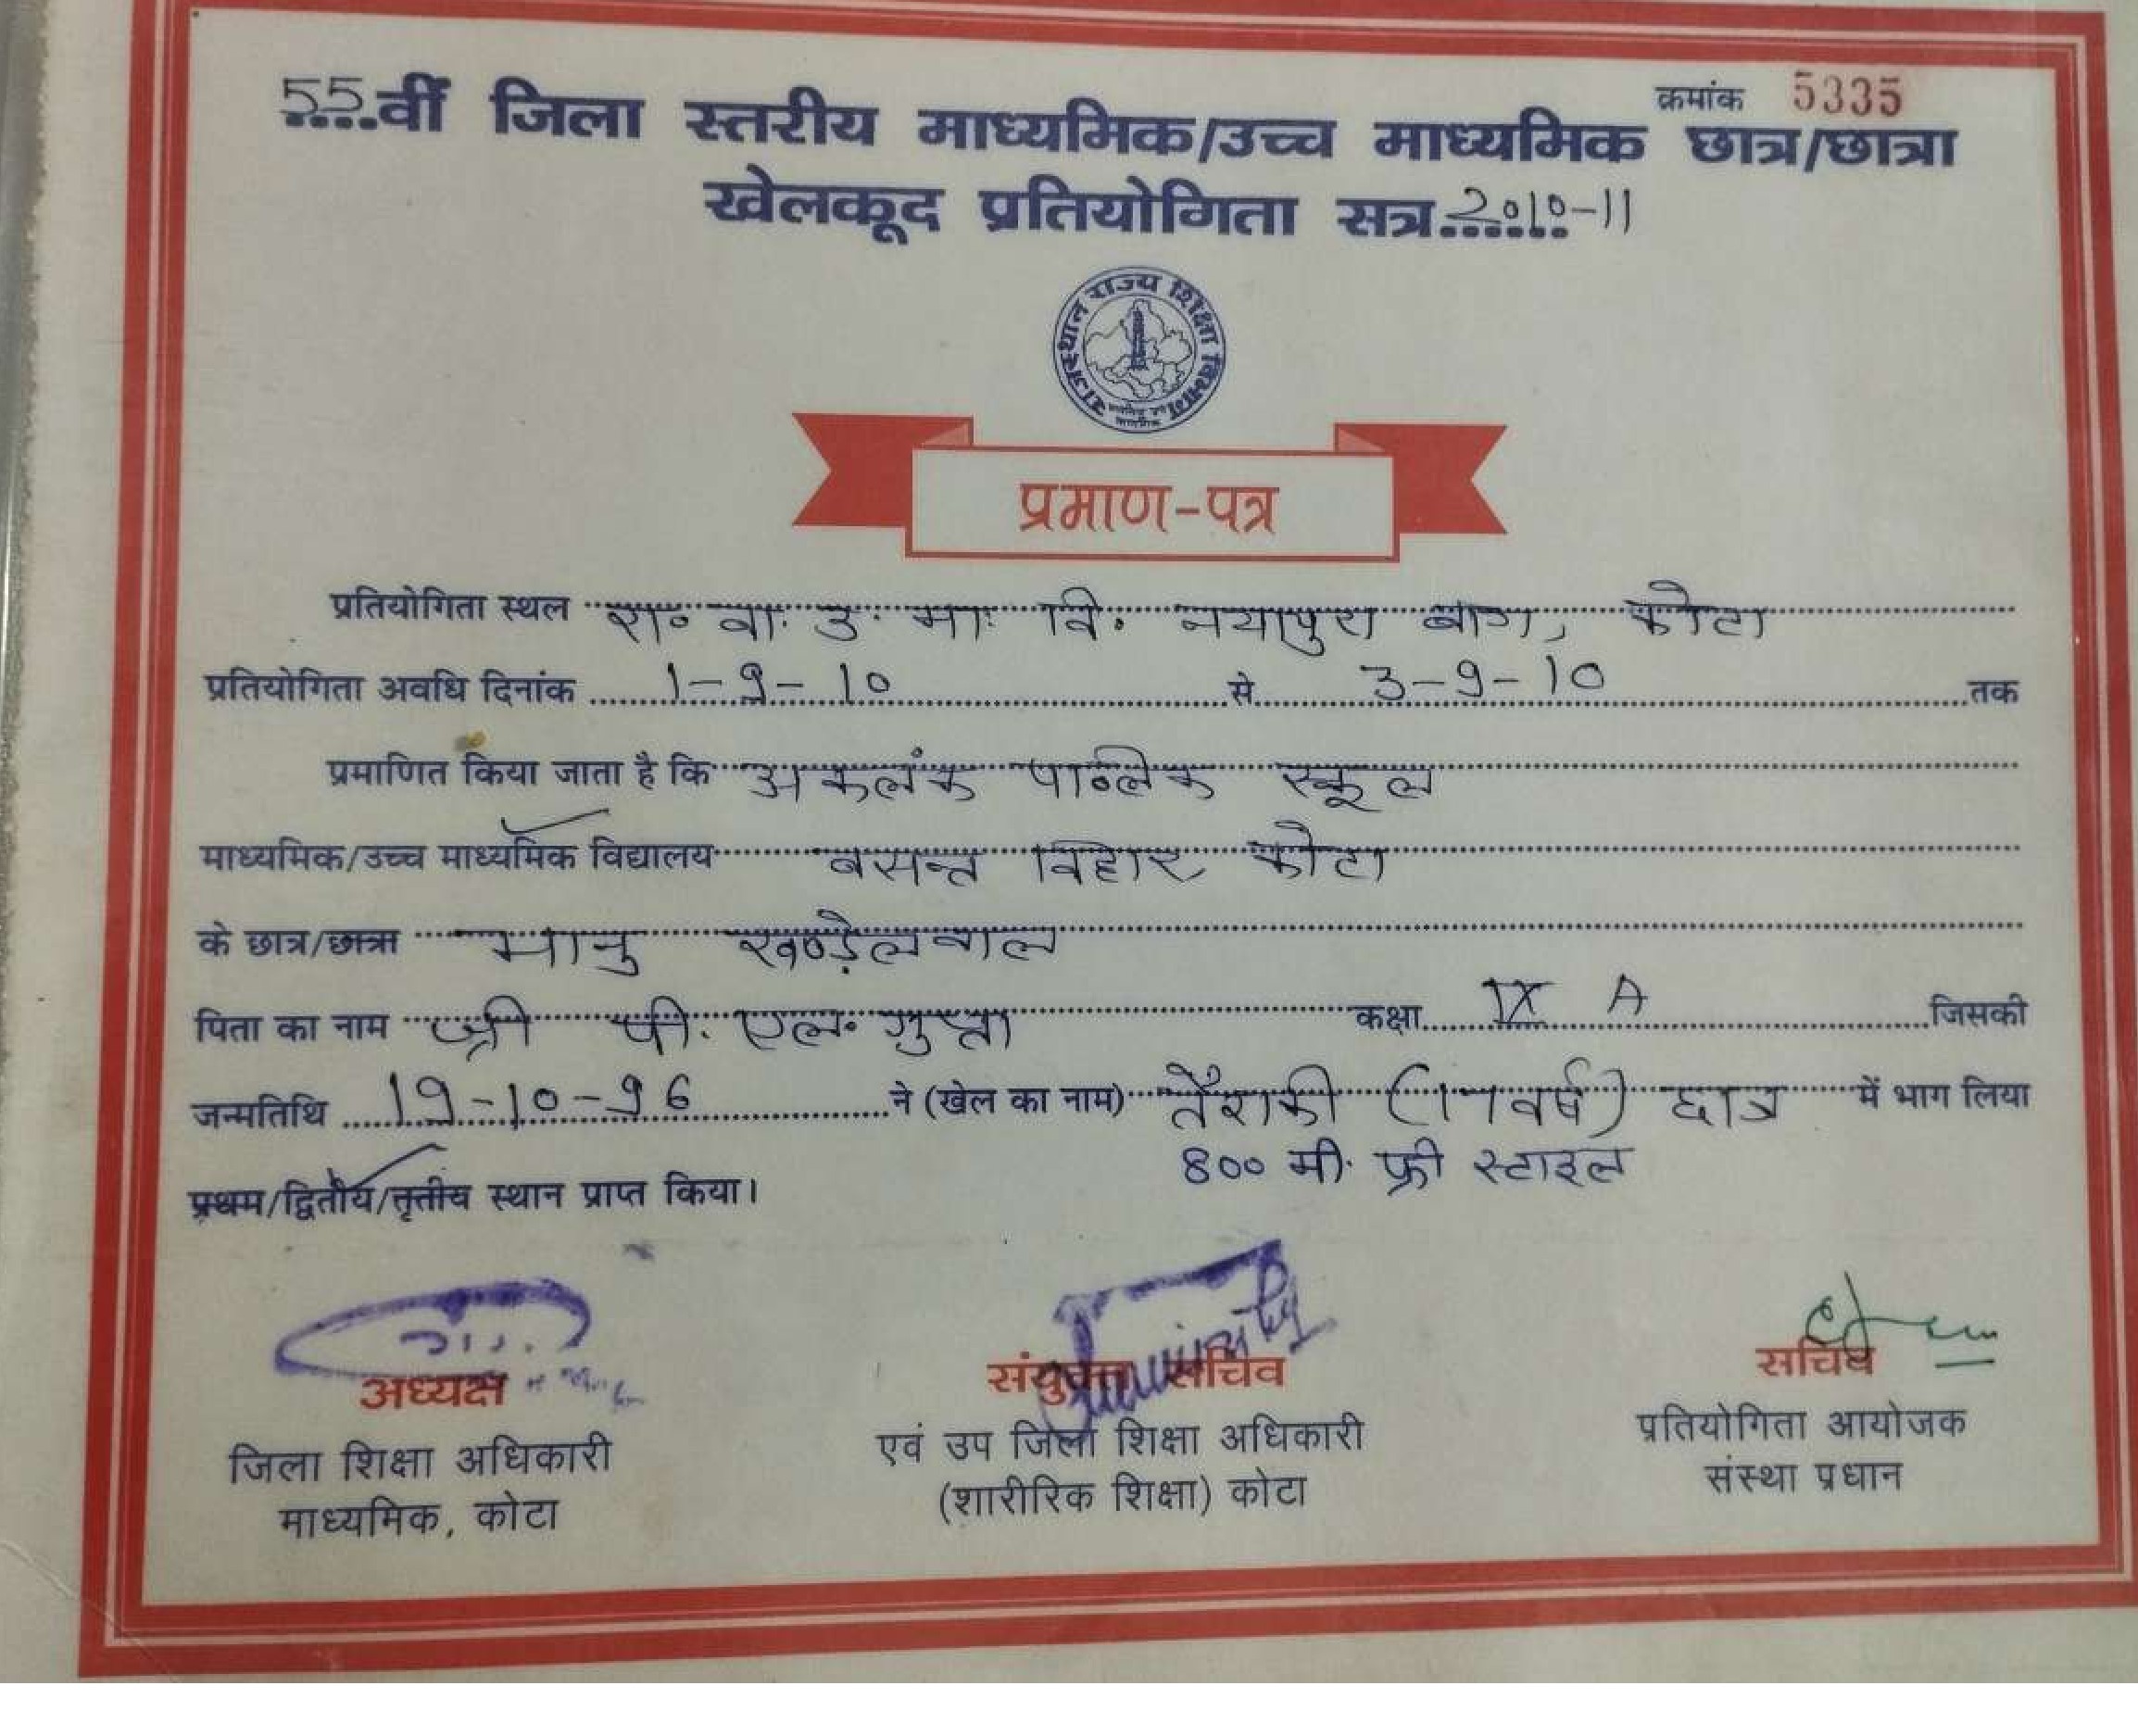 क्रमांक 5335
55वीं जिला स्तरीय माध्यमिक/उच्च माध्यमिक छात्र/छात्रा
खेलकूद प्रतियोगिता सत्र 2010-11
राजस्थान राज्य शिक्षा विभाग
प्रमाण-पत्र
प्रतियोगिता स्थल रा॰ बा. उ. मा. वि. नयापुरा बाग, कोटा
प्रतियोगिता अवधि दिनांक 1-9-10 से 3-9-10 तक
प्रमाणित किया जाता है कि अकलंक पब्लिक स्कूल
माध्यमिक/उच्च माध्यमिक विद्यालय बसन्त विहार, कोटा
के छात्र/छात्रा भानु खण्डेलवाल
पिता का नाम श्री पी. एल॰ गुप्ता कक्षा IX A जिसकी
जन्मतिथि 19-10-96 ने (खेल का नाम) तैराकी (17 वर्ष) छात्र में भाग लिया
800 मी. फ्री स्टाइल
प्रथम/द्वितीय/तृतीय स्थान प्राप्त किया।
अध्यक्ष
जिला शिक्षा अधिकारी
माध्यमिक, कोटा
संयुक्त सचिव
एवं उप जिला शिक्षा अधिकारी
(शारीरिक शिक्षा) कोटा
सचिव
प्रतियोगिता आयोजक
संस्था प्रधान